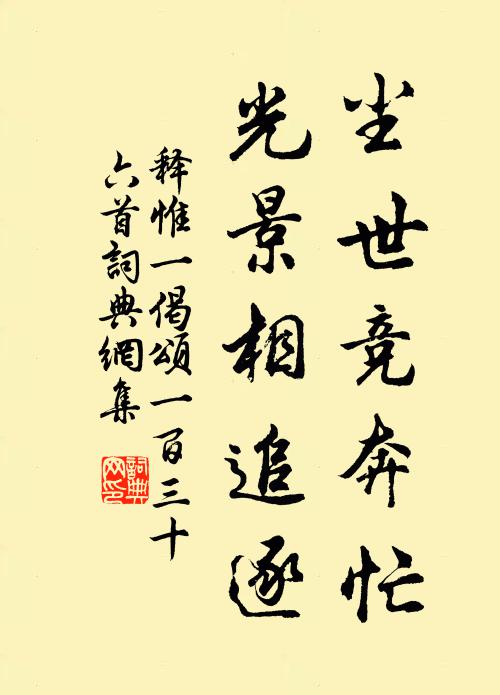 尘世竞奔忙
光景相追逐
释惟一偈頌一百三十
六首詞典網集
詞典
网印